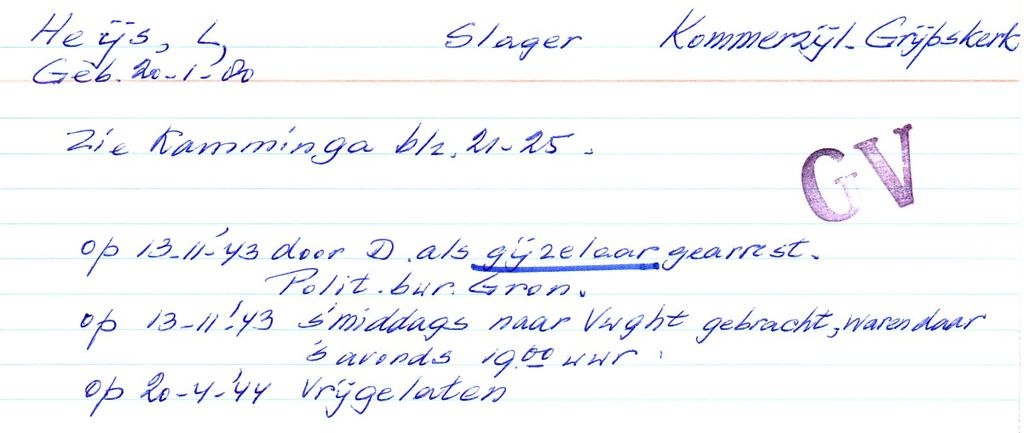 Heÿs, L, Slager Kommerzijl-Grijpskerk
Geb. 20-1-80
Zie Kamminga blz. 21-25.
GV
op 13-11-'43 door D. als gijzelaar gearrest.
Polit. bur. Gron.
op 13-11-'43 's middags naar Vught gebracht, waren daar
's avonds 19.00 uur.
op 20-4-'44 Vrijgelaten